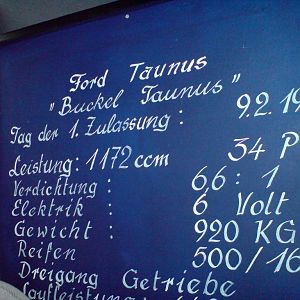 Ford Taunus
"Buckel Taunus"
Tag der 1. Zulassung : 9.2.19
Leistung: 1172 ccm 34 P
Verdichtung : 6,6 : 1
Elektrik : 6 Volt
Gewicht : 920 KG
Reifen 500/16
Dreigang Getriebe
Laufleistung